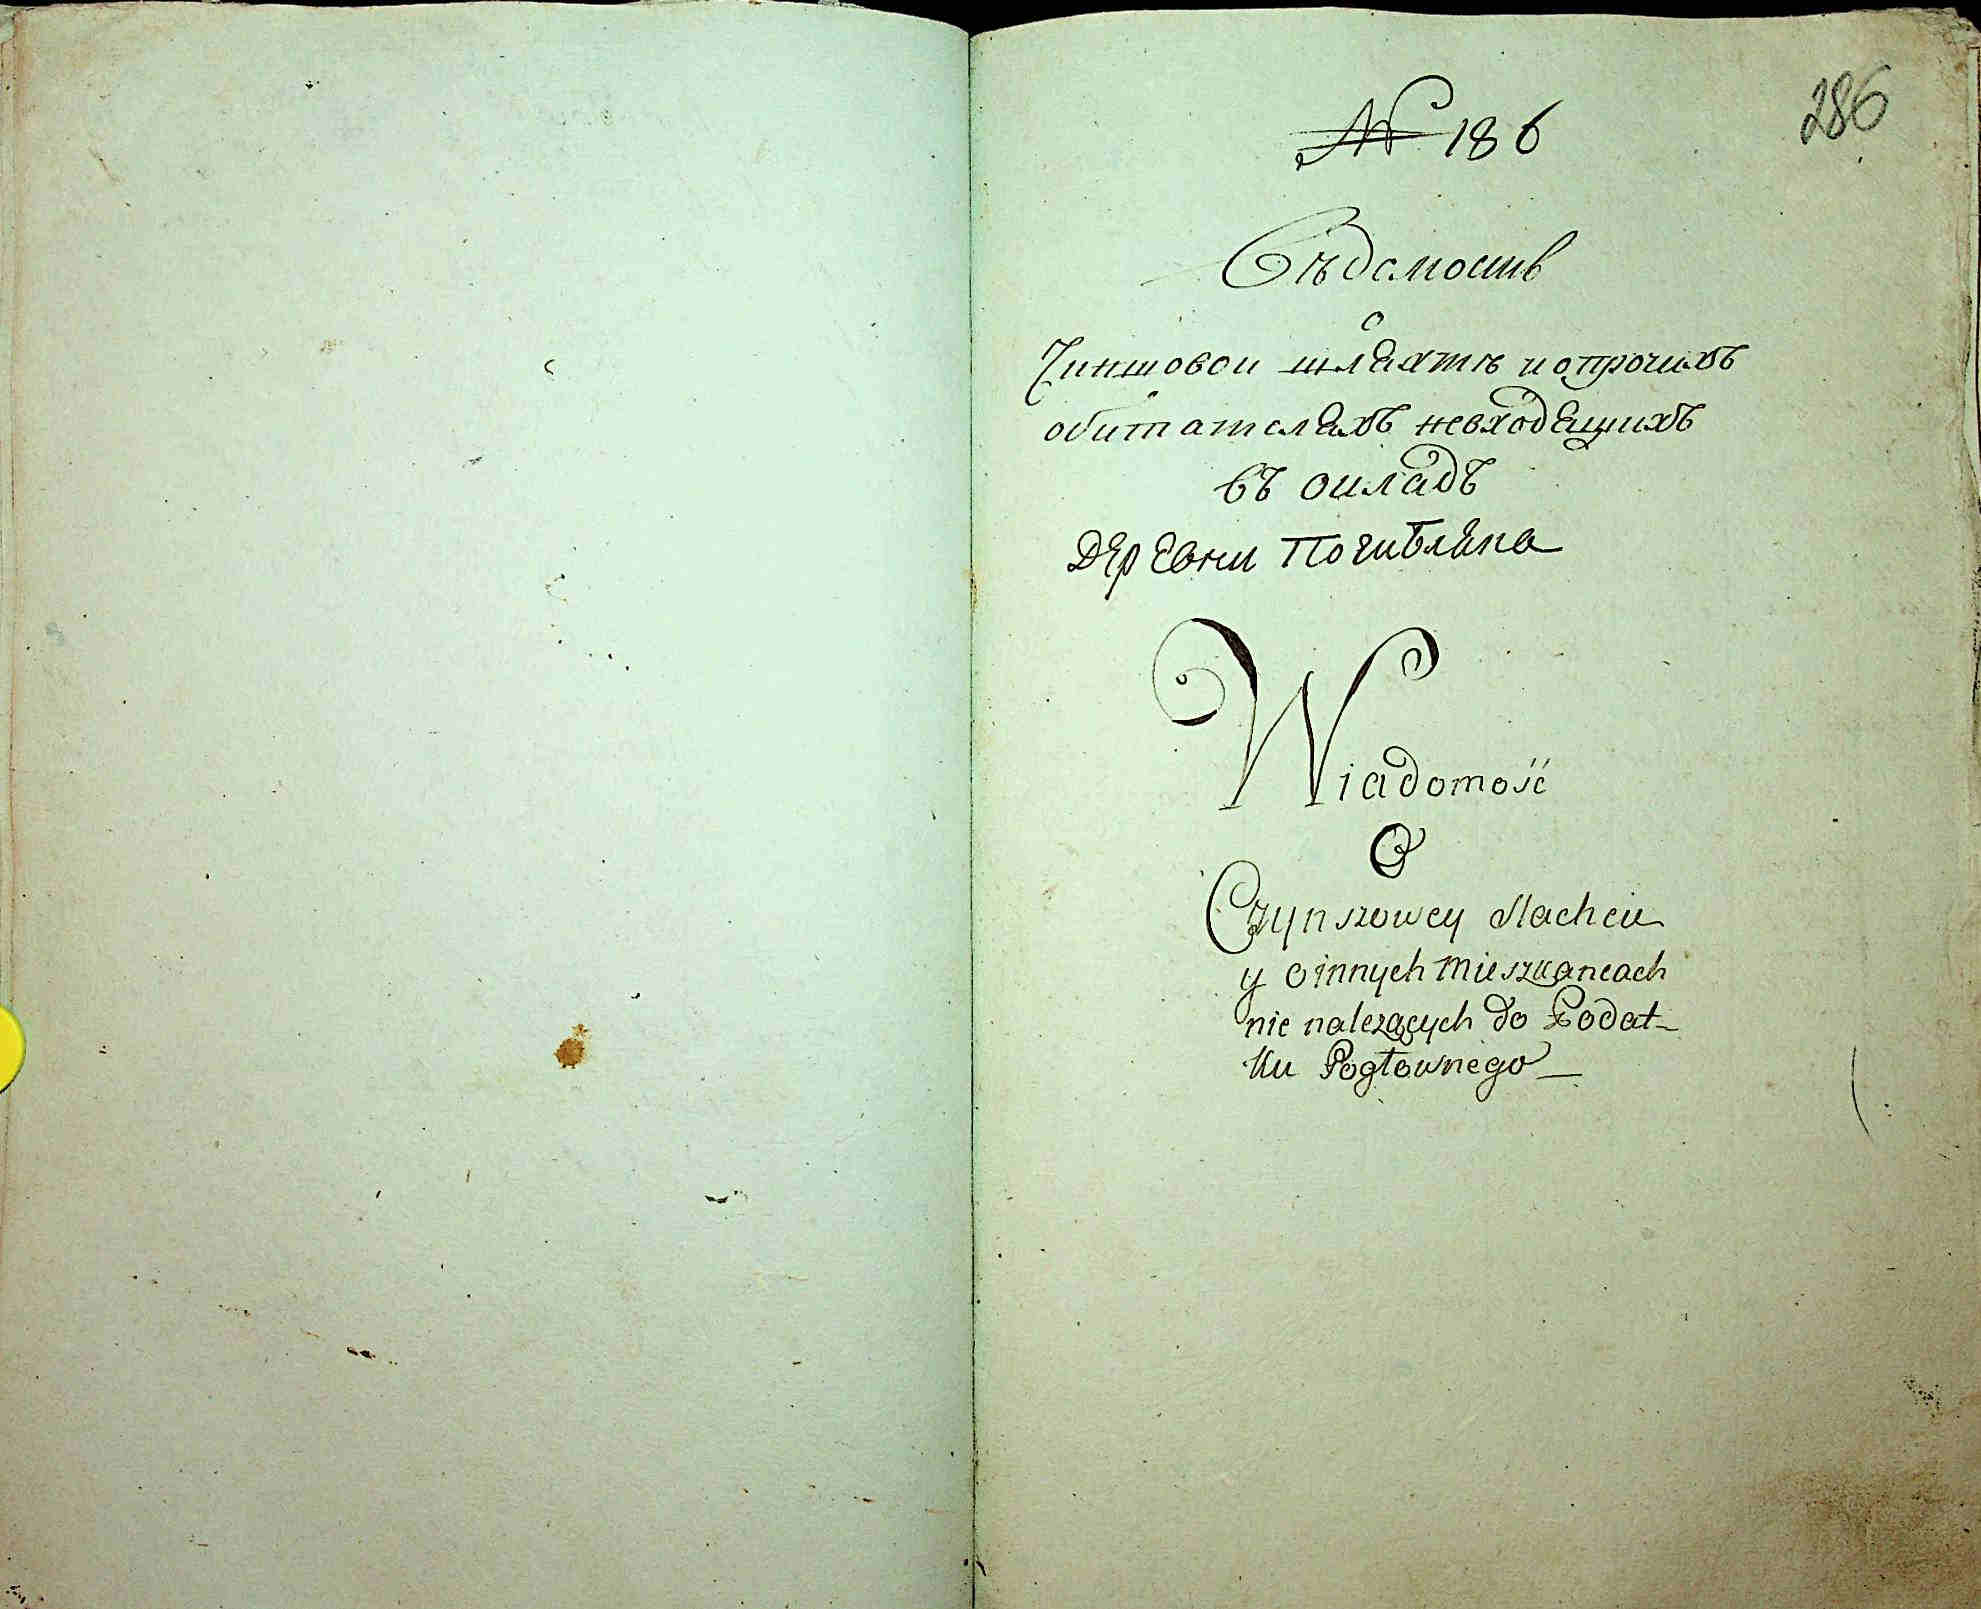 286
№ 186
Вѣдомость
о
Чиншовой шляхтѣ и о прочихъ
обитателяхъ невходящихъ
въ окладъ
деревни Погибляка
Wiadomość
O
Czynszowey Slachcie
y o innych Mieszkancach
nie nalezących do Podat-
ku Pogłownego